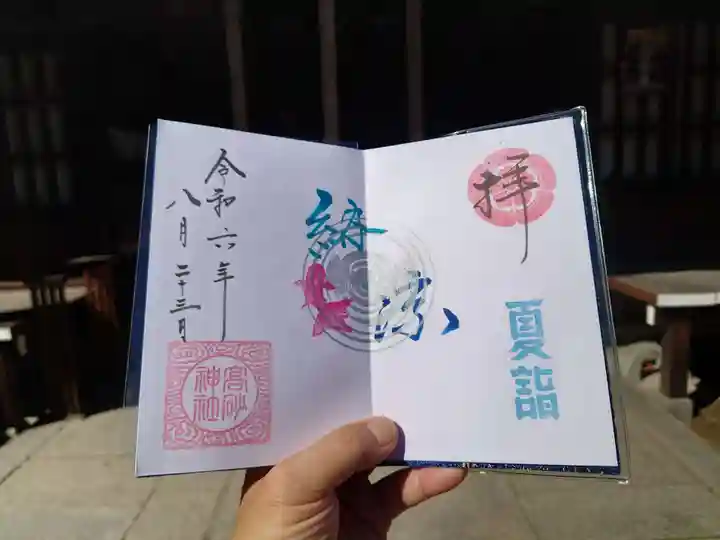 拝
夏詣
納涼
令和六年
八月二十三日
高砂
神社